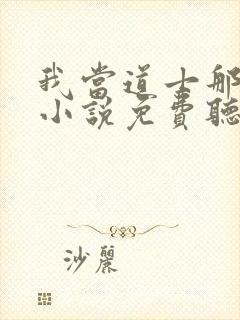 我當道士那
小說免費聽
沙麗